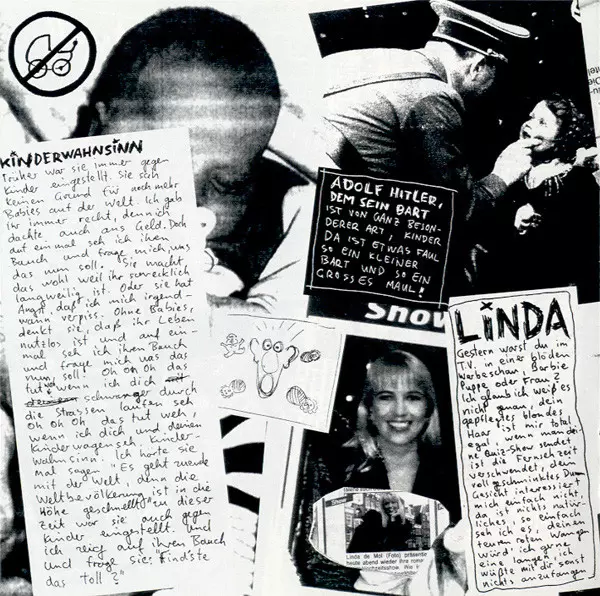 KINDERWAHNSINN
Früher war sie immer gegen
Kinder eingestellt. Sie sah
keinen Grund für noch mehr
Babies auf der Welt. Ich gab
ihr immer recht, denn ich
dachte auch ans Geld. Doch
auf einmal seh ich ihren
Bauch und frage mich, was
das nun soll? Sie macht
das wohl weil ihr schrecklich
langweilig ist. Oder sie hat
Angst, daß ich mich irgend-
wann verpiss. Ohne Babies,
denkt sie, daß ihr Leben
nutzlos ist und auf ein-
mal seh ich ihren Bauch
und frage mich was das
nun soll? Oh oh oh das
tut weh wenn ich dich
schwanger durch
die Strassen laufen seh
oh oh oh das tut weh,
wenn ich dich und deinen
Kinderwagen seh. Kinder-
wahnsinn. Ich hörte sie
mal sagen: "Es geht zuende
mit der Welt, denn die
Weltbevölkerung ist in die
Höhe geschnellt", zu dieser
Zeit war sie auch gegen
Kinder eingestellt. Und
ich zeig auf ihren Bauch
und frage sie: "Find'ste
das toll?"
ADOLF HITLER,
DEM SEIN BART
IST VON GANZ BESON-
DERER ART, KINDER
DA IST ETWAS FAUL
SO EIN KLEINER
BART UND SO EIN
GROSSES MAUL!
Snow
LINDA
Gestern warst du im
T.V. in einer blöden
Werbeschau, Barbie
Puppe oder Frau?
Ich glaub ich weiß es
nicht genau, dein
gepflegtes blondes
Haar ist mir total
egal, wenn man dei-
ne Quiz-Show sendet
ist die Fernsehzeit
verschwendet, dein
voll geschminktes Dumm
Gesicht interessiert
mich einfach nicht,
da is nichts natür-
liches, so einfach
seh ich es, deinen
teuren roten Wangen
würd' ich gern
eine langen, ich
wüßte mit dir sonst
nichts anzufangen
Linda de Mol (Foto) präsentie
heute abend wieder ihre roma